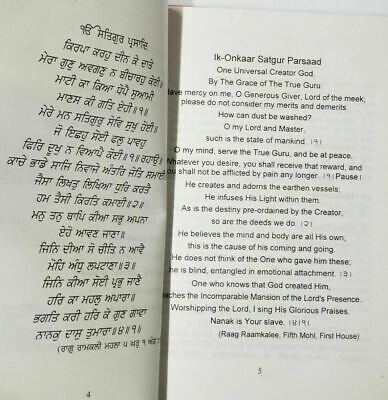 ੴ ਸਤਿਗੁਰ ਪ੍ਰਸਾਦਿ
ਕਿਰਪਾ ਕਰਹੁ ਦੀਨ ਕੇ ਦਾਤੇ
ਮੇਰਾ ਗੁਣੁ ਅਵਗਣੁ ਨ ਬੀਚਾਰਹੁ ਕੋਈ॥
ਮਾਟੀ ਕਾ ਕਿਆ ਧੋਪੈ ਸੁਆਮੀ
ਮਾਣਸ ਕੀ ਗਤਿ ਏਹੀ॥੧॥
ਮੇਰੇ ਮਨ ਸਤਿਗੁਰੁ ਸੇਵਿ ਸੁਖੁ ਹੋਈ॥
ਜੋ ਇਛਹੁ ਸੋਈ ਫਲੁ ਪਾਵਹੁ
ਫਿਰਿ ਦੂਖੁ ਨ ਵਿਆਪੈ ਕੋਈ॥੧॥ਰਹਾਉ॥
ਕਾਚੇ ਭਾਡੇ ਸਾਜਿ ਨਿਵਾਜੇ ਅੰਤਰਿ ਜੋਤਿ ਸਮਾਈ
ਜੈਸਾ ਲਿਖਤੁ ਲਿਖਿਆ ਧੁਰਿ ਕਰਤੈ
ਹਮ ਤੈਸੀ ਕਿਰਤਿ ਕਮਾਈ॥੨॥
ਮਨੁ ਤਨੁ ਥਾਪਿ ਕੀਆ ਸਭੁ ਅਪਨਾ
ਏਹੋ ਆਵਣ ਜਾਣਾ॥
ਜਿਨਿ ਦੀਆ ਸੋ ਚੀਤਿ ਨ ਆਵੈ
ਮੋਹਿ ਅੰਧੁ ਲਪਟਾਣਾ॥੩॥
ਜਿਨਿ ਕੀਆ ਸੋਈ ਪ੍ਰਭੁ ਜਾਣੈ
ਹਰਿ ਕਾ ਮਹਲੁ ਅਪਾਰਾ॥
ਭਗਤਿ ਕਰੀ ਹਰਿ ਕੇ ਗੁਣ ਗਾਵਾ
ਨਾਨਕ ਦਾਸੁ ਤੁਮਾਰਾ॥੪॥੧॥
(ਰਾਗੁ ਰਾਮਕਲੀ ਮਹਲਾ ੫ ਘਰੁ ੧ ਅੰਗ
4
Ik-Onkaar Satgur Parsaad
One Universal Creator God.
By The Grace of The True Guru:
Have mercy on me, O Generous Giver, Lord of the meek;
please do not consider my merits and demerits.
How can dust be washed?
O my Lord and Master,
such is the state of mankind. ।੧।
O my mind, serve the True Guru, and be at peace.
Whatever you desire, you shall receive that reward, and
you shall not be afflicted by pain any longer. ।੧।Pause।
He creates and adorns the earthen vessels;
He infuses His Light within them.
As is the destiny pre-ordained by the Creator,
so are the deeds we do. ।੨।
He believes the mind and body are all His own;
this is the cause of his coming and going.
He does not think of the One who gave him these;
he is blind, entangled in emotional attachment. ।੩।
One who knows that God created Him,
reaches the Incomparable Mansion of the Lord's Presence.
Worshipping the Lord, I sing His Glorious Praises.
Nanak is Your slave. ।੪।੧।
(Raag Raamkalee, Fifth Mohl, First House)
5